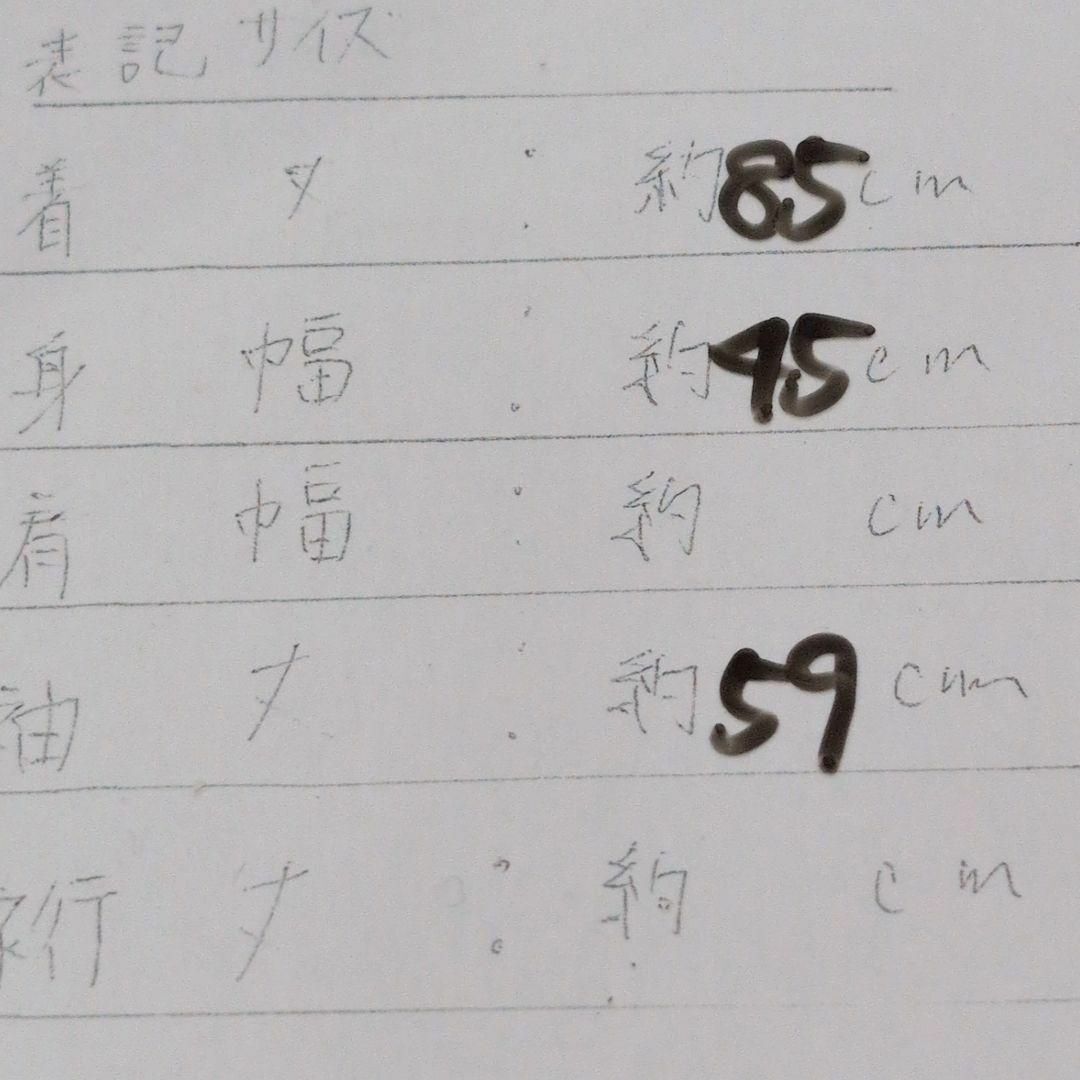 表記サイズ
着丈:約85cm
身幅:約45cm
肩幅:約 cm
袖丈:約59cm
裄丈:約 cm